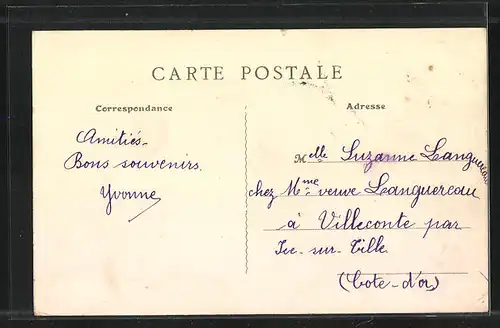 CARTE POSTALE
Correspondance
Adresse
Amitiés.
Bons souvenirs.
Yvonne
Melle Suzanne Languereau
chez Mme veuve Languereau
à Villeconte par
Is-sur-Tille.
(Cote-d'or)